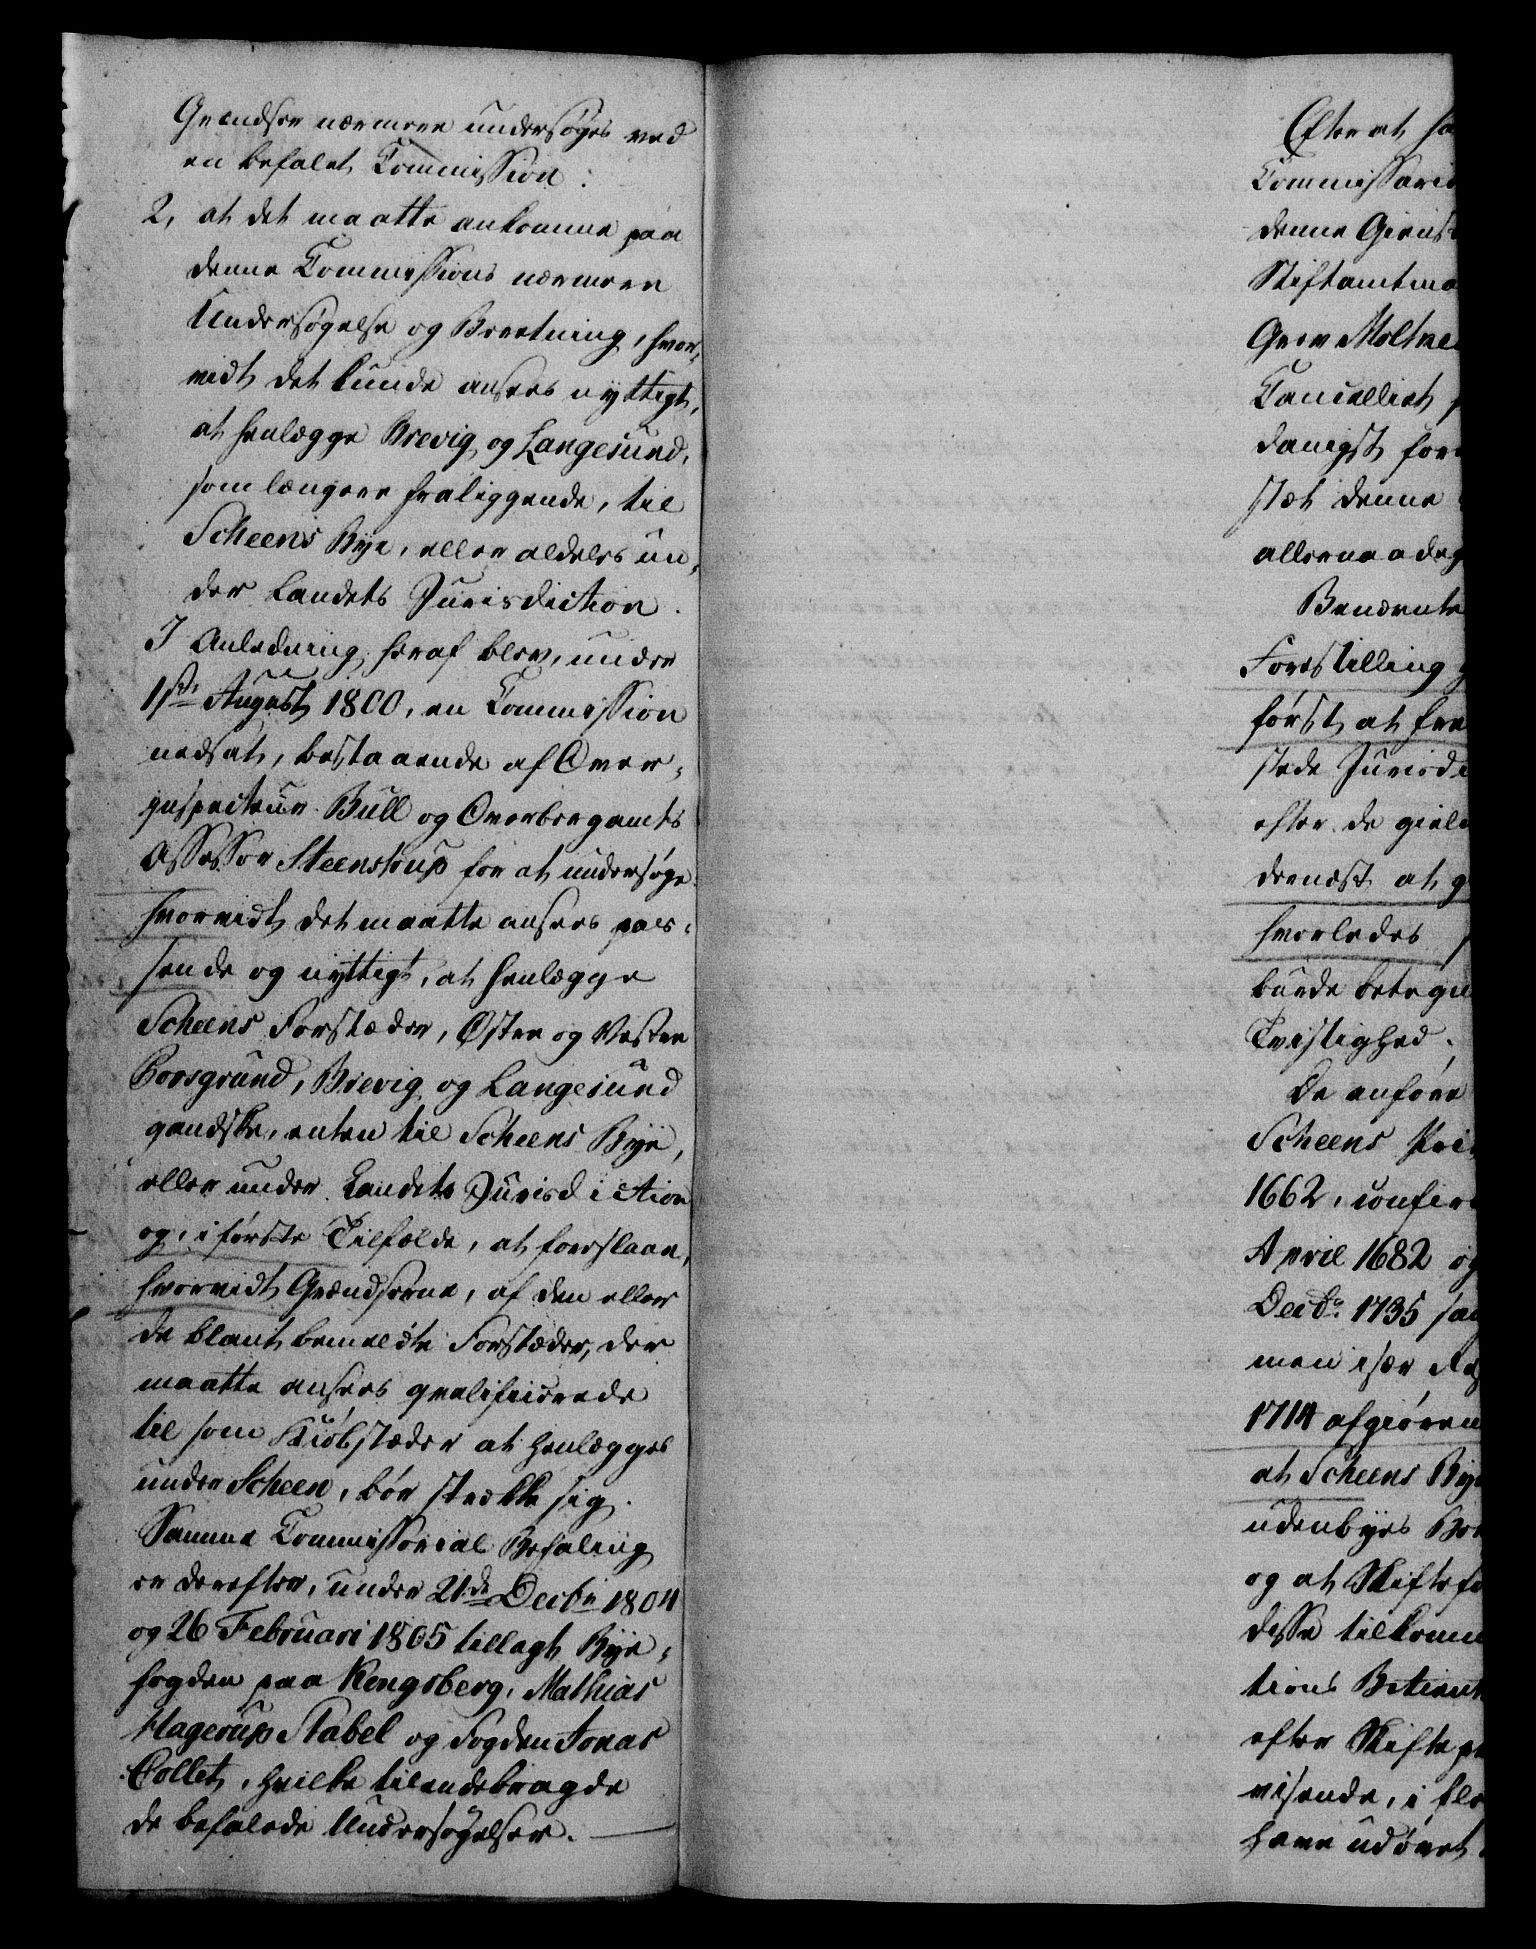 Grændser nærmere undersøges ved
en befalet Commission.
2, at det maatte ankomme paa
denne Commissions nærmere
Undersøgelse og Beretning, hvor-
vidt det kunde ansees nyttigt,
at henlægge Brevig og Langesund,
som længere fraliggende, til
Scheens Bye, eller aldeles un-
der Landets Jurisdiction.
I Anledning heraf blev, under
1ste August 1800, en Commission
nedsat, bestaaende af Over-
inspecteur Bull og Overbergamts
Assessor Steenstrup for at undersøge
hvorvidt det maatte ansees pas-
sende og nyttigt, at henlægge
Scheens Forstæder, Østre og Vestre
Porsgrund, Brevig og Langesund
gandske, enten til Scheens Bye,
eller under Landets Jurisdiction
og, i første Tilfælde, at foreslaae,
hvorvidt Grændserne, af den eller
de blant bemeldte Forstæder, der
maatte ansees qvalificerede
til som Kiøbstæder at henlægges
under Scheen, bør strække sig.
Samme Commissorial Befaling
er derefter, under 21de Decbr 1804
og 26 Februari 1805 tillagt Bye-
fogden paa Kongsberg, Mathias
Hagerup Stabel og Fogden Jonas
Collet, hvilke tilendebragde
de befalede Undersøgelser.
Efter at ha
Commissario
denne Gienst
Stiftamtma
Grev Moltke
Cancelliet
danigst fore
stæt denne
allernaadig
Benævnte
Forestilling
først at fre
stede Jurisdi
efter de gield
dernæst at g
hvorledes
burde betegn
Tvistighed.
De anføre
Scheens Pri
1662, confir
April 1682 og
Decbr 1735 sa
men især Re
1714 afgiøren
at Scheens Bye
udenbyes Bor
og at Skiftefo
disse tilkomm
tions Betient
efter Skifte p
visende, i fle
have udøvet